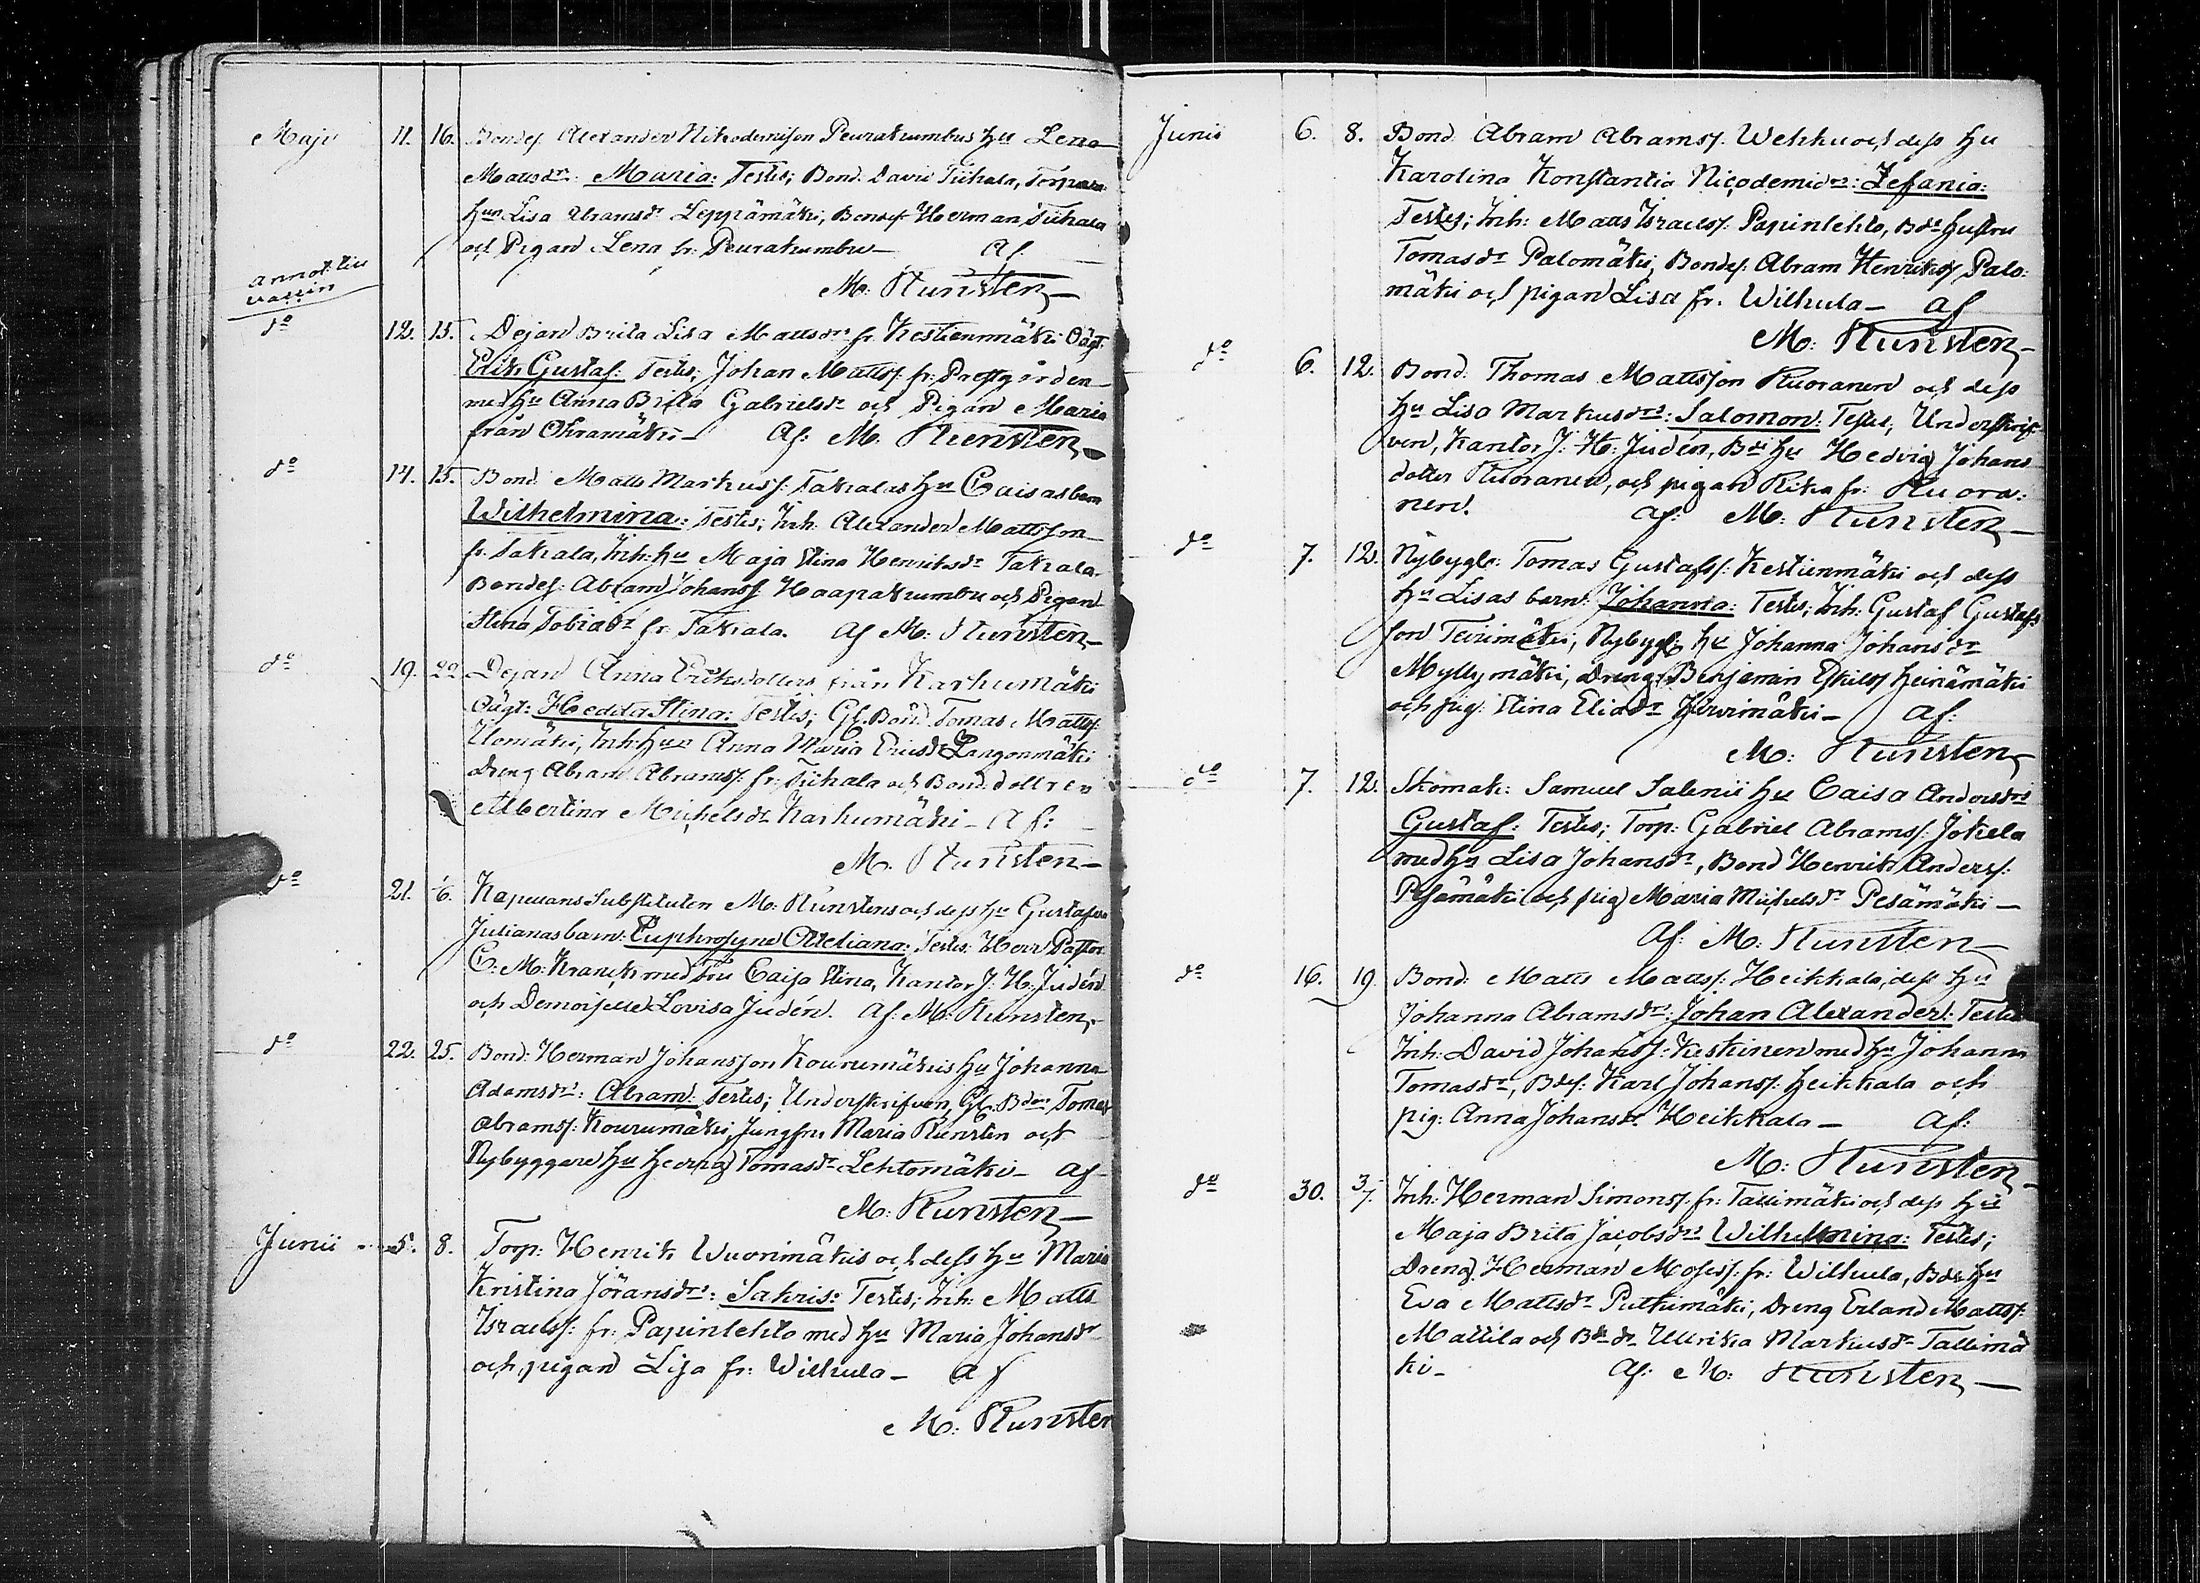 Majo 11. 16. Bondes. Alexander Nikodemisson Peurakumbus hu Lena
Mattsdrs: Maria: Testes; Bond. David Tiihala, Torpare
hun Lisa Abramsdr Leppämäki, Bondes. Herman Tiihala
och Pigan Lena fr. Peurakumbu — Af.
M. Kunsten —
annot.
do 12. 15. Dejan Brita Lisa Mattsdrs fr. Kestienmäki Oägt:
Erik Gustaf: Testes; Johan Mattss. fr. Prestgården
med hu Anna Brita Gabrielsdr och Pigan Maria
från Ohramäki — Af: M. Kunsten —
do 14. 15. Bond. Matts Markuss. Takalas hu Caisas barn
Wilhelmina: Testes; Inh. Alexander Mattsson
fr. Takala, Inh: hu Maja Stina Henriksdr Takala
Bondes: Abram Johanss. Haapakumbu och Pigan
Stina Tobiadr fr. Takala. Af M: Kunsten —
do 19. 22 Dejan Anna Eriksdotters från Karhumäki
Oägt: Hedda Stina: Testes; Gl. Bond. Tomas Mattss.
Ulomäki, Inh: hun Anna Maria Ericsdr Langonmäki
dreng Abram Abramss. fr. Tiihala och Bond. dottren
Albertina Michelsdr Karhumäki — Af:
M. Kunsten —
do 21. 6. Kapellans Substituten M: Kunstens och dess hu Gustafva
Julianas barn: Euphrosyne Aureliana: Testes: Herr Pastor
C: M: Kranck med Fru Caisa Stina, Kantor J. H. Judén
och Demoiselle Lovisa Judén. Af: M: Kunsten,—
do 22. 25. Bond: Herman Johansson Kourumäkis hu Johanna
Adamsdrs: Abram: Testes; Underskrifven, Gl. Bden Tomas
Abramss: Kourumäki, Jungfru Maria Kunsten och
Nybyggare hu Hedvig Tomasdr Lehtomäki — Af
M: Kunsten —
Junii 5. 8. Torp: Henrik Wuorimäkis och dess hu Maria
Kristina Jöransdrs: Sakris: Testes; Inh: Matts
Israelss: fr: Papinlehto med hu Maria Johansdr
och pigan Lisa fr: Wilhula — af
M: Kunsten
Junii 6. 8. Bond. Abram Abramss. Wehku och dess hu
Karolina Konstantia Nicodemidrs: Zefania:
Testes; Inh: Matts Israelss: Papinlehto, Bds hustru
Tomasdr Palomäki, Bondes. Abram Henrikss Palo:
mäki och pigan Lisa fr. Wilhula — af
M: Kunsten —
do 6. 12. Bond. Thomas Mattsson Kuoranen och dess
hu Lisa Markusdrs: Salomon: Testes; Underskrif:
ven, Kantor J: H: Judén, Bds hu Hedvig Johans
dotter Kuoranen, och pigan Rika fr: Kuora:
nen. af: M: Kunsten —
do 7. 12. Nybygg: Tomas Gustafss: Kestienmäki och dess
hu Lisas barn: Johanna: Testes; Inh: Gustaf Gustafs
son Teirimäki, Nybygg: hu Johanna Johansdr
Myllymäki, Dreng Benjamin Eskilss Heinämäki
och pig: Stina Eliadr — Af:
M: Kunsten
do 7. 12. Skomak: Samuel Salenii hu Caisa Andersdrs
Gustaf: Testes; Torp: Gabriel Abramss: Jokela
med hu Lisa Johansdr, Bond Henrik Anderss:
Pesämäki och pig: Maria Michelsdr Pesämäki —
Af: M: Kunsten —
do 16. 19. Bond: Matts Mattss: Heikkala, dess hu
Johanna Abramsdrs: Johan Alexander: Testes
Inh: David Johanss: Keskinen med hu Johanna
Tomasdr, Bds: Karl Johanss. Heikkala och
pig: Anna Johansdr Heikkala — Af:
M: Kunsten —
do 30. 3/7. Inh: Herman Simonss. fr: Tallimäki och dess hu
Maja Brita Jacobsdrs Wilhelmina: Testes;
Dreng. Herman Mosess. fr: Wilhula, Bds hu
Eva Mattsdr Putkimäki, Dreng Erland Mattss:
Mattila och Bds dr Ullrika Markusdr Tallimä
ki — Af: M: Kunsten —